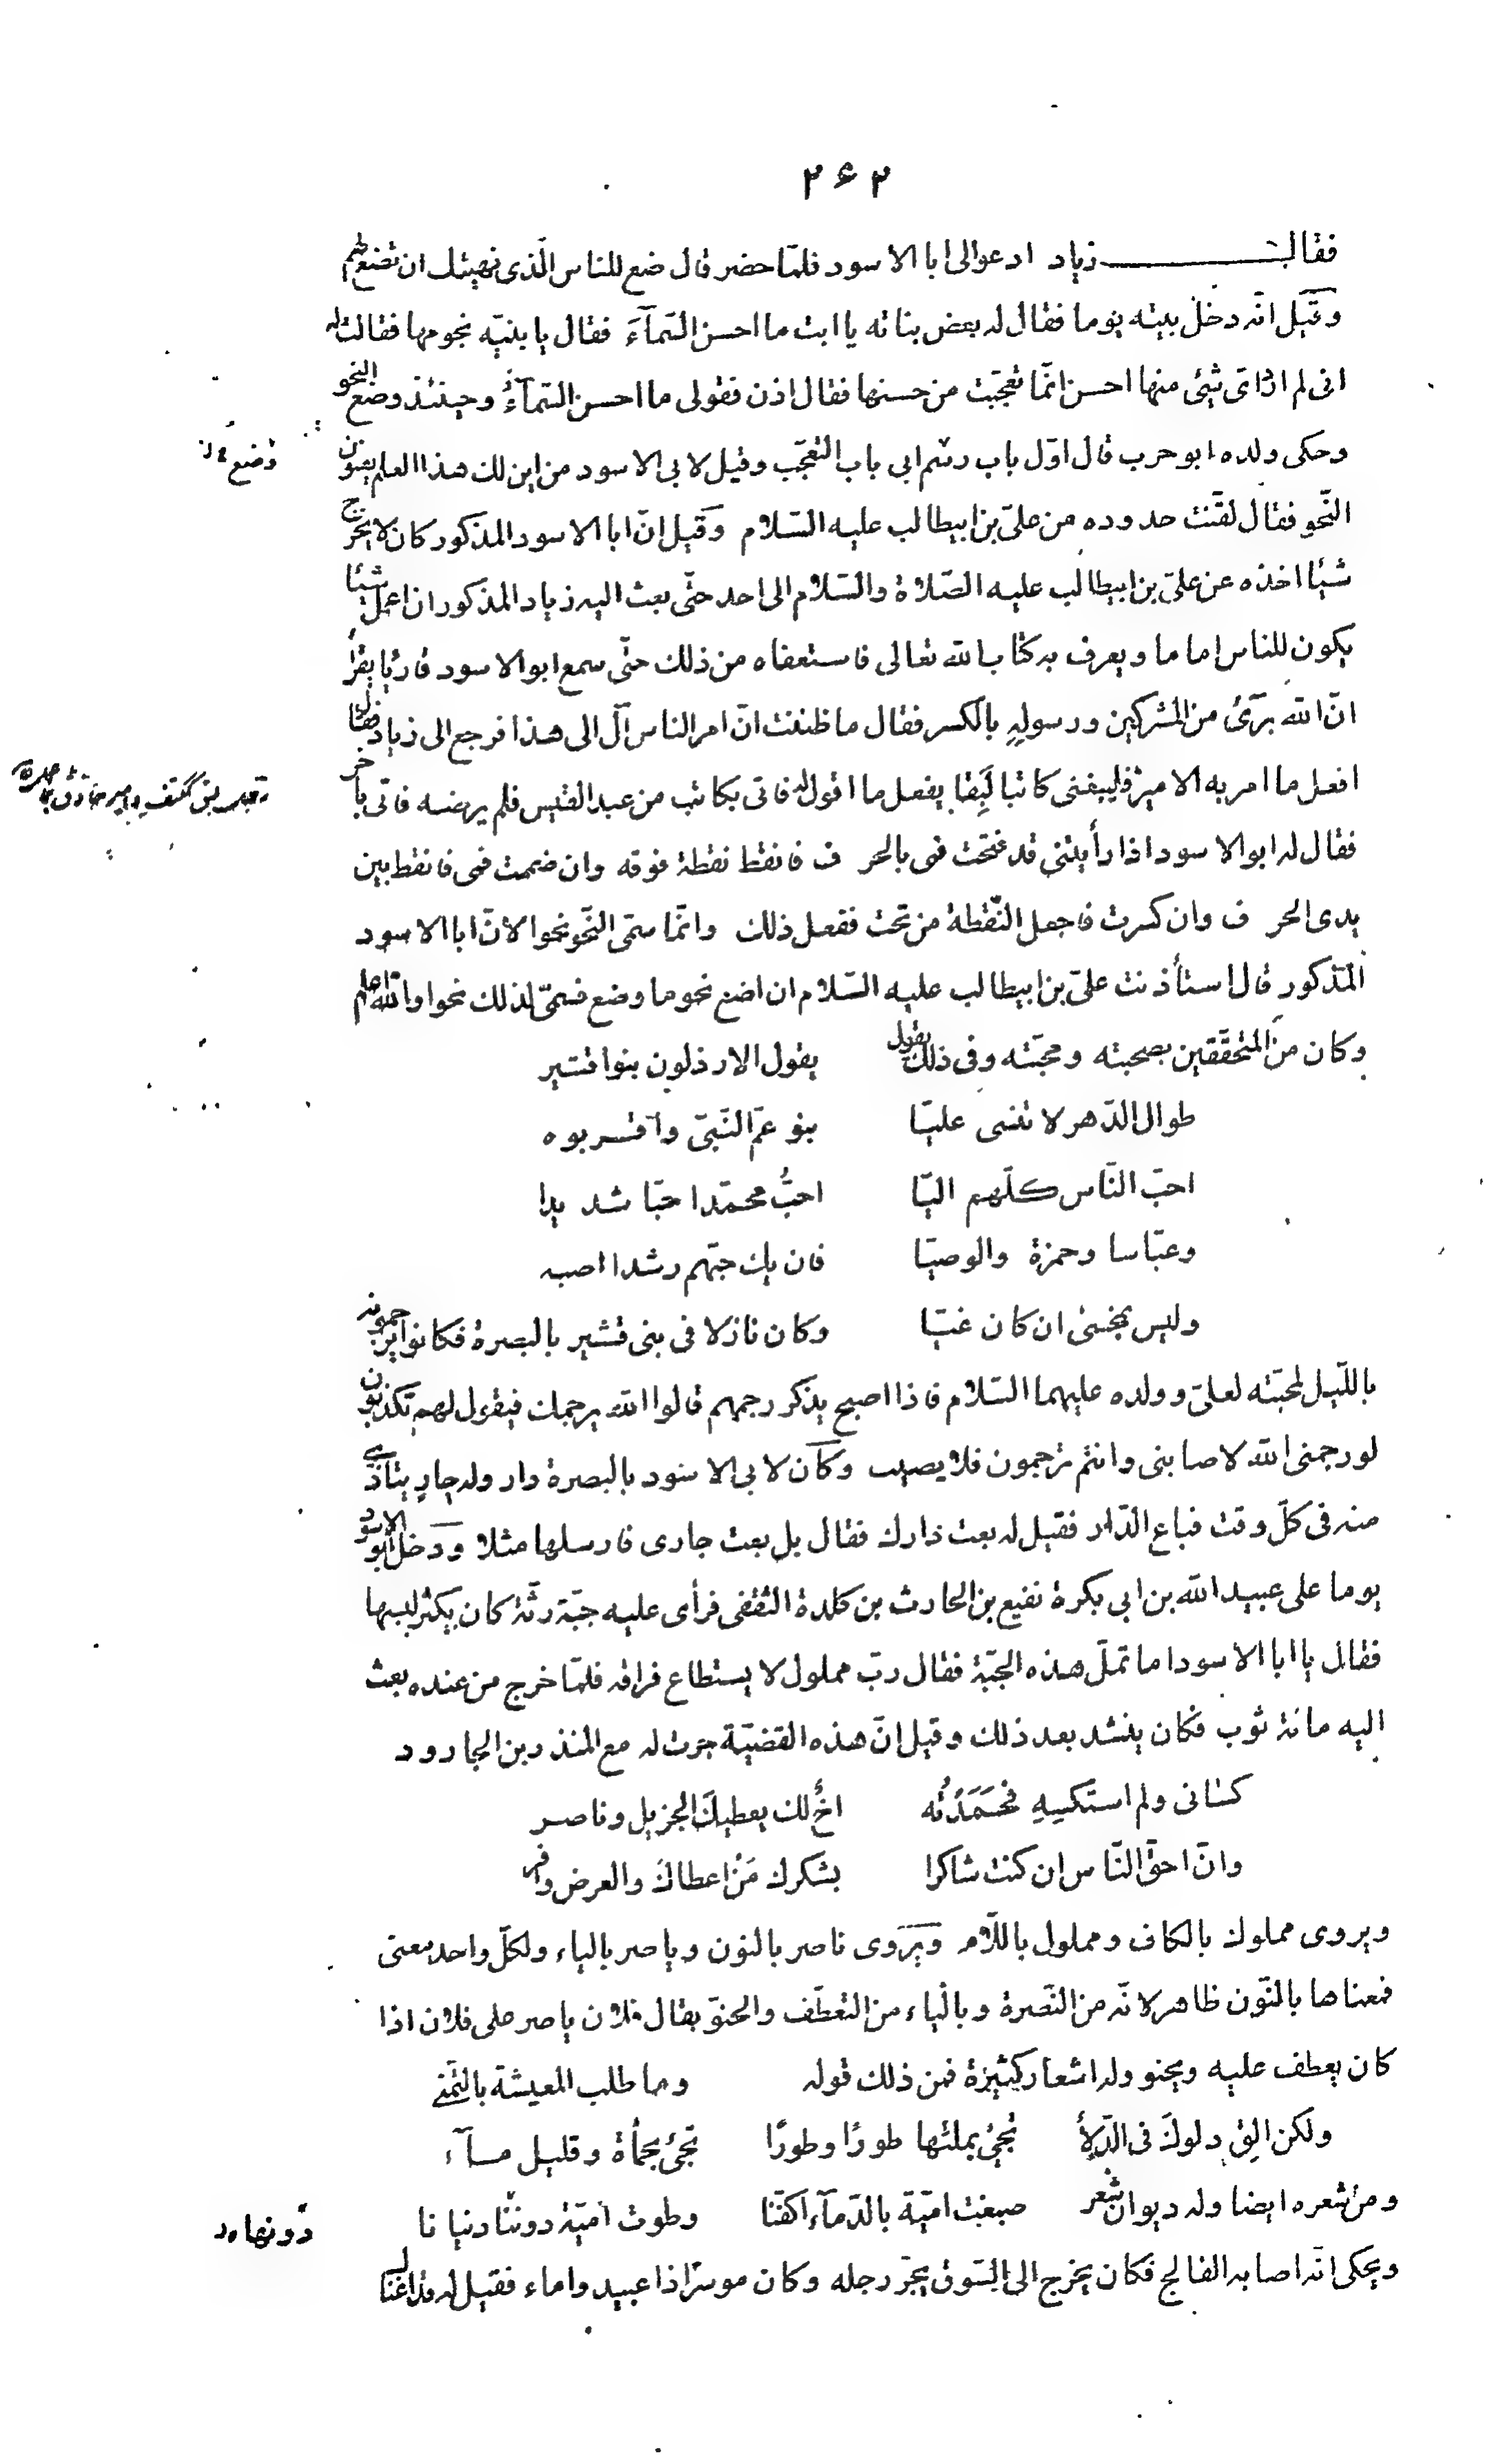 ۲۶۲
فقال زياد ادعوا لى ابا الاسود فلمّا حضر قال ضع للناس الّذى نهيتك ان تضع لهم
وقيل انّه دخل بيته يوما فقال له بعض بناته يا ابت ما احسن السّمآءَ فقال يا بنيّه نجومها فقالت له
انى لم ارد اى شيئ منها احسن انّما تعجّبت من حسنها فقال اذن فقولى ما احسن السّمآءَ وحينئذ وضع النحو
وحكى ولده ابو حرب قال اوّل باب رسم ابى باب التعجّب وقيل لابى الاسود من اين لك هذا العلم يعنون
وضع
النّحو فقال لقّنت حدوده من علىّ بن ابيطالب عليه السّلام وقيل انّ ابا الاسود المذكور كان لا يخرج
شيئا اخذه عن علىّ بن ابيطالب عليه الصّلاة والسّلام الى احد حتّى بعث اليه زياد المذكور ان اعمل شيئا
يكون للناس اماما ويعرف به كتاب الله تعالى فاستعفاه من ذلك حتّى سمع ابو الاسود قارئا يقرأ
انّ الله برَئٌ من المشركين ورسولِهِ بالكسر فقال ما ظننت انّ امر الناس آل الى هذا فرجع الى زياد فقال
افعل ما امر به الامير فليبغنى كاتبا لَبِقا يفعل ما اقول له فاتى بكاتب من عبد القيس فلم يرضه فاتى بآخر
فقال له ابو الاسود اذا رأيتنى قد فتحت فمى بالحرف فانقط نقطة فوقه وان ضممت فمى فانقط بين
يدى الحرف وان كسرت فاجعل النّقطة من تحت ففعل ذلك وانّما سمّى النّحو نحوا لانّ ابا الاسود
المذكور قال استأذنت علىّ بن ابيطالب عليه السّلام ان اضع نحو ما وضع فسمّى لذلك نحوا والله اعلم
وكان من المتحقّقين بصحبته ومحبّته وفى ذلك يقول يقول الارذلون بنوا قشير
طوال الدّهر لا تنسى عليّا بنو عمّ النّبىّ واقربوه
احبّ النّاس كلّهم اليّا احبُّ محمّدا حبّا شديدا
وعبّاسا وحمزة والوصيّا فان يك حبّهم رشدا اصبه
وليس بمخطئ ان كان غيّا وكان نازلا فى بنى قشير بالبصرة فكانوا يرجمونه
باللّيل لمحبّته لعلىّ وولده عليهما السّلام فاذا اصبح يذكر رجمهم قالوا الله يرجمك فيقول لهم تكذبون
لو رجمنى الله لاصابنى وانتم ترجمون فلا يصيب وكان لابى الاسود بالبصرة دار وله جارٍ يتأذّى
منه فى كلّ وقت فباع الدّار فقيل له بعت دارك فقال بل بعت جارى فارسلها مثلا ودخل ابو الاسود
يوما على عبيد الله بن ابى بكرة نفيع بن الحارث بن كلدة الثقفى فرأى عليه جبّة رثّة كان يكثر لبسها
فقال يا ابا الاسود اما تملّ هذه الجبّة فقال ربّ مملول لا يستطاع فراقه فلمّا خرج من عنده بعث
اليه مائة ثوب فكان ينشد بعد ذلك وقيل انّ هذه القضيّة جرت له مع المنذر بن الجارود
كسانى ولم استكسِهِ فحَمَدْتُه اخٌ لك يعطيك الجزيل وناصر
وانّ احقّ النّاس ان كنت شاكرا بشكرك مَنْ اعطاكَ والعرض وافر
ويروى مملوك بالكاف ومملول باللّام ويروى ناصر بالنون وياصر بالياء ولكلّ واحد معنى
فمعناها بالنّون ظاهر لانّه من النّصرة وبالياء من التعطّف والحنوّ يقال فلان ياصر على فلان اذا
كان يعطف عليه ويحنو وله اشعار كثيرة فمن ذلك قوله وما طلب المعيشة بالتّمنّى
ولكن الق دلوك فى الدّلآء تجئ بملئها طورًا وطورًا تجئ بحمأة وقليل مآء
ومن شعره ايضا وله ديوان شعر صبغت اميّة بالدّمآء اكفّنا وطوت اميّة دوننا دنيانا
دونها
ويحكى انّه اصابه الفالج فكان يخرج الى السّوق يجرّ رجله وكان موسرًا ذا عبيد واماء فقيل له قد اغناك